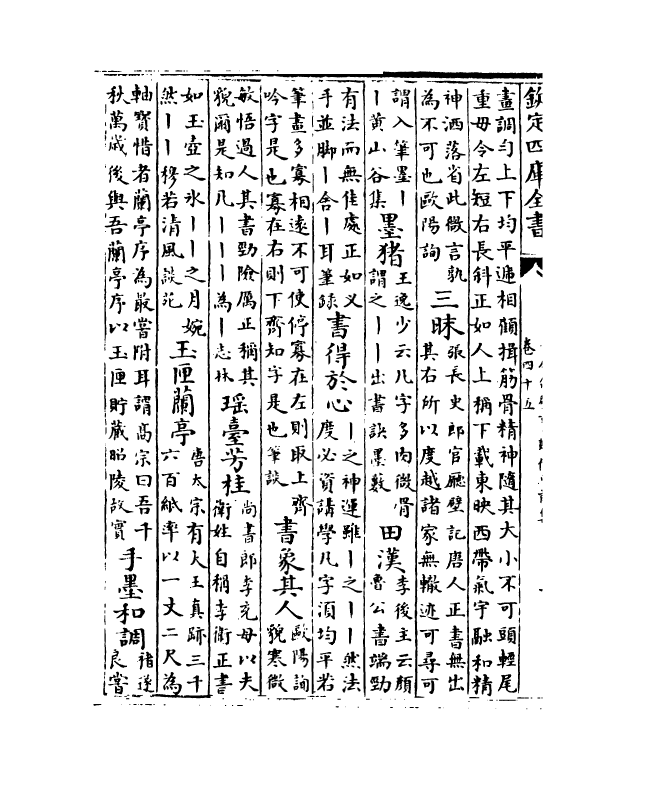 欽定四庫全書
卷四十五
畫調勻上下均平遞相顧揖筋骨精神隨其大小不可頭輕尾
重毋令左短右長斜正如人上稱下載東映西帶氣宇融和精
神洒落省此微言孰
為不可也歐陽詢
三昧
張長史郎官廳壁記唐人正書無出
其右所以度越諸家無轍迹可尋可
謂入筆墨丨
丨黃山谷集
墨猪
王逸少云凡字多肉微骨
謂之丨丨出書訣墨藪
田漢
李後主云顏
魯公書端勁
有法而無佳處正如乂
手並脚丨舍丨耳筆録
書得於心
丨之神運雖丨之丨丨然法
度必資講學凡字須均平若
筆畫多寡相遠不可使停寡在左則取上齊
吟字是也寡在右則下齊知字是也筆談
書象其人
歐陽詢
貌寒微
敏悟過人其書勁險厲正稱其
貌爾是知凡丨丨丨為丨志林
瑶臺芳桂
尚書郎李充母以夫
衛姓自稱李衛正書
如玉壺之氷丨丨之月婉
然丨丨穆若清風談苑
玉匣蘭亭
唐太宗有大王真跡三千
六百紙率以一丈二尺為
軸寳惜者蘭亭序為最嘗附耳謂髙宗曰吾千
秋萬歲後與吾蘭亭序以玉匣貯藏昭陵故實
手墨和調
禇遂
良嘗